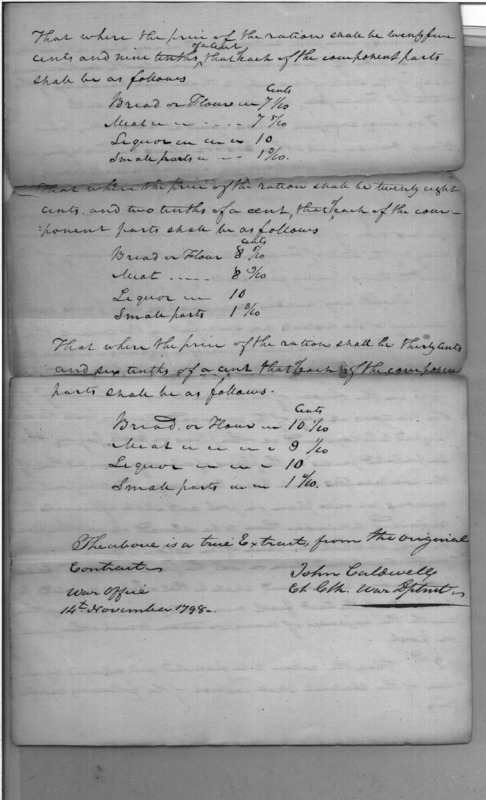 That where the price of the ration shall be twenty five
cents and nine tenths of a cent, that each of the component parts
shall be as follows
Cents
Bread or Flour 7
Meat 7
Liquor 10
Small parts 1
That where the price of the ration shall be twenty eight
cents and two tenths of a cent, that each of the com-
ponent parts shall be as follows
cents
Bread or Flour 8
Meat 8
Liquor 10
Small parts 1
That where the price of the ration shall be thirty cents
and six tenths of a cent that each of the componen
parts shall be as follows.
Cents
Bread or Flour 10 1/10
Meat 9 1/10
Liquor 10
Small parts 1
The above is a true Extract from the original
Contract
War Office
14th November 1798.
John Caldwell
Ch. Clk. War Dptmt